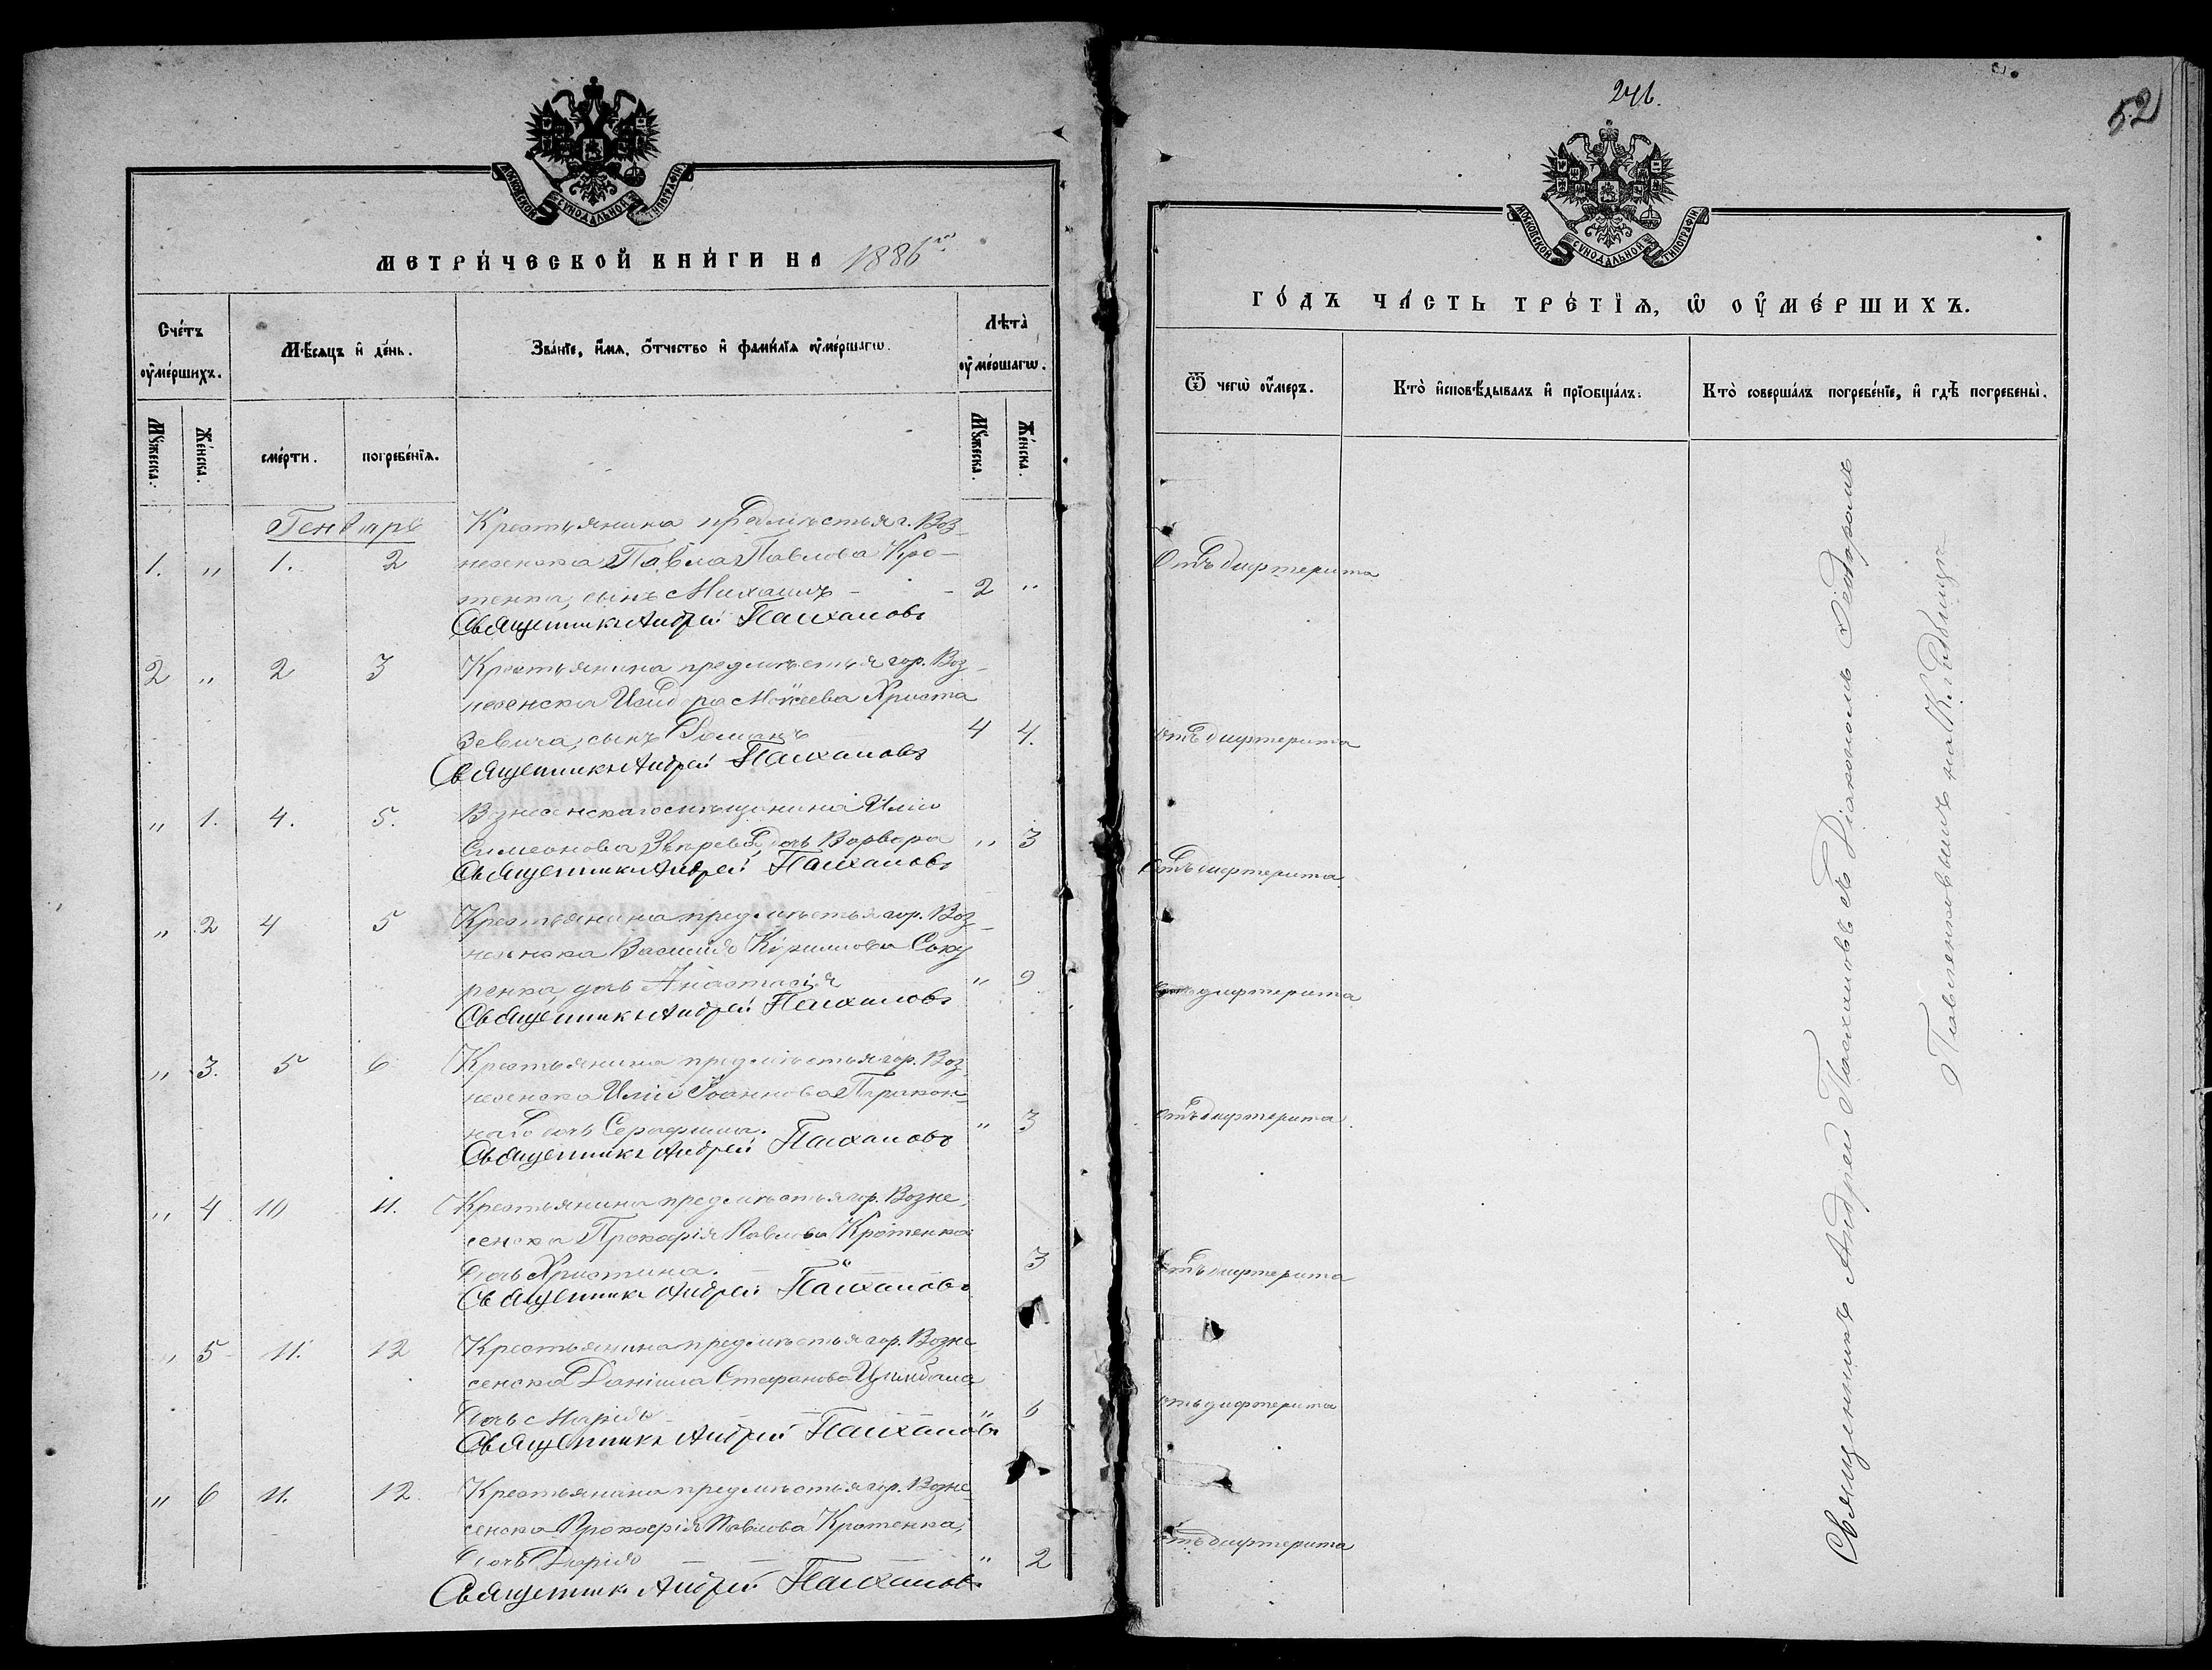 МОСКОВСКОЙ СѴНОДАЛЬНОЙ ТИПОГРАФІИ
МЕТРИЧЕСКОЙ КНИГИ НА 1886й
Счетъ оумершихъ.
Мѣсяцъ и день.
Званіе, имя, отчество и фамилія оумершагѡ.
Лѣта оумершагѡ.
Мꙋжеска.
Женска.
смерти.
погребенія.
Мꙋжеска.
Женска.
Генварь
Крестьянина предмѣстья г. Воз-
1. " 1. 2 несенска Павла Павлова Кро-
тенка, сынъ Михаилъ - - 2 "
Священникъ Андрей Палхаловъ
2 " 2 3 Крестьянина предмѣстья гор. Воз-
несенска Исидора Моисеева Христа
зевича, сынъ Романъ 4 4.
Священникъ Андрей Палхаловъ
" 1. 4. 5. Вознесенскаго мѣщанина Иліи
Симеонова Звѣрева, дочь Варвара " 3
Священникъ Андрей Палхаловъ
" 2 4 5 Крестьянина предмѣстья гор. Воз-
несенска Василія Кириллова Соку
ренка, дочь Анастасія " 9
Священникъ Андрей Палхаловъ
" 3. 5 6 Крестьянина предмѣстья гор. Воз
несенска Иліи Іоаннова
дочь Серафима. " 3
Священникъ Андрей Палхаловъ
" 4 10 11. Крестьянина предмѣстья гор. Возне
сенска Прокофія Павлова Кротенка
дочь Христина. 3
Священникъ Андрей Палхаловъ
" 5 11. 12 Крестьянина предмѣстья гор. Возне
сенска Даніила Стефанова Цимбала
дочь Марія "
Священникъ Андрей Палхаловъ
" 6 11. 12. Крестьянина предмѣстья гор. Возне-
сенска Прокофія Павлова Кротенка,
дочь Дарія " 2
Священникъ Андрей Палхаловъ
246.
52
МОСКОВСКОЙ СѴНОДАЛЬНОЙ ТИПОГРАФІИ
ГОДЪ ЧАСТЬ ТРЕТІЯ, Ѡ ОУМЕРШИХЪ.
Ѿ чегѡ оумеръ.
Кто исповѣдывалъ и пріобщалъ:
Кто совершалъ погребеніе, и гдѣ погребены.
Отъ дифтерита
отъ дифтерита
Отъ дифтерита
отъ дифтерита
отъ дифтерита.
Отъ дифтерита
отъ дифтерита
отъ дифтерита
Священникъ Андрей Палхаловъ съ Діакономъ Ѳеодоромъ
Павленковымъ на Кладбищѣ